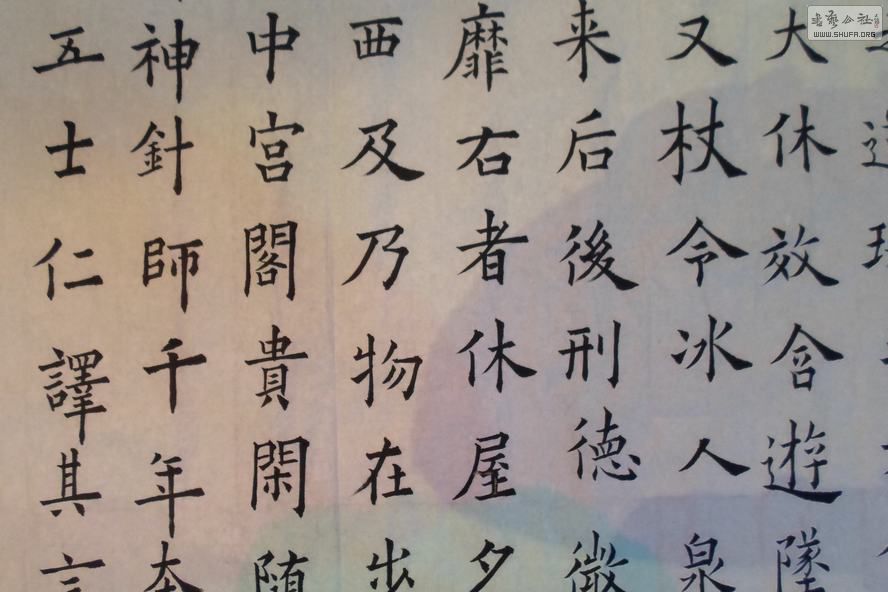 大休效含遊墜
又杖令冰人泉
来后後刑德微
靡右者休屋夕
西及乃物在出
中宫閣貴閑随
神針師千年
五士仁譯其言
WWW.SHUFA.ORG